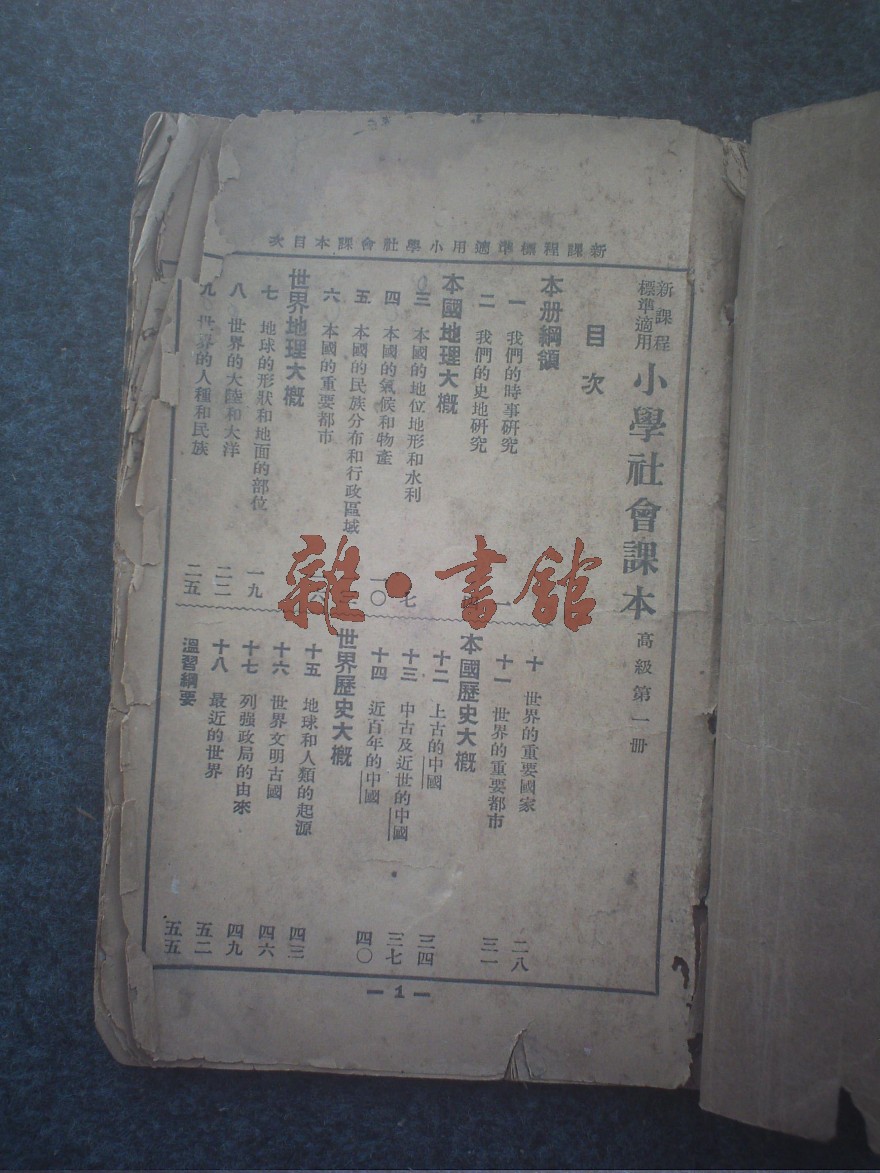 新課程標準適用小學社會課本目次
新課程
標準適用
小學社會課本 高級第一冊
目次
本册綱領
一 我們的時事研究 一
二 我們的史地研究
本國地理大概
三 本國的地位地形和水利 七
四 本國的氣候和物產 一〇
五 本國的民族分布和行政區域
六 本國的重要都市
世界地理大概
七 地球的形狀和地面的部位 一九
八 世界的大陸和大洋 二二
九 世界的人種和民族 二五
十 世界的重要國家 二八
十一 世界的重要都市 三一
本國歷史大概
十二 上古的中國 三四
十三 中古及近世的中國 三七
十四 近百年的中國 四〇
世界歷史大概
十五 地球和人類的起源 四三
十六 世界文明古國 四六
十七 列強政局的由來 四九
十八 最近的世界 五二
溫習綱要 五五
— 1 —
雜·書館